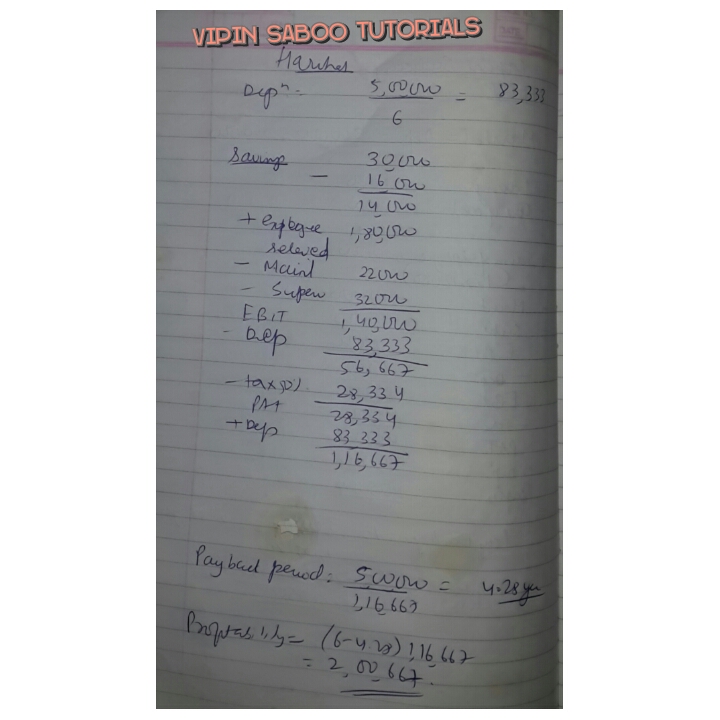 VIPIN SABOO TUTORIALS
Depⁿ = 5,00,000 = 83,333
6
Savings 30,000
- 16,000
14,000
+ employee 1,80,000
relieved
- Maint 22000
- Super 32000
EBIT 1,40,000
- Dep 83,333
56,667
- tax 50% 28,334
PAT 28,334
+ Dep 83 333
1,16,667
Payback period: 500000 = 4.28 yrs
1,16,667
= (6-4.28) 1,16,667
= 2,00,667.